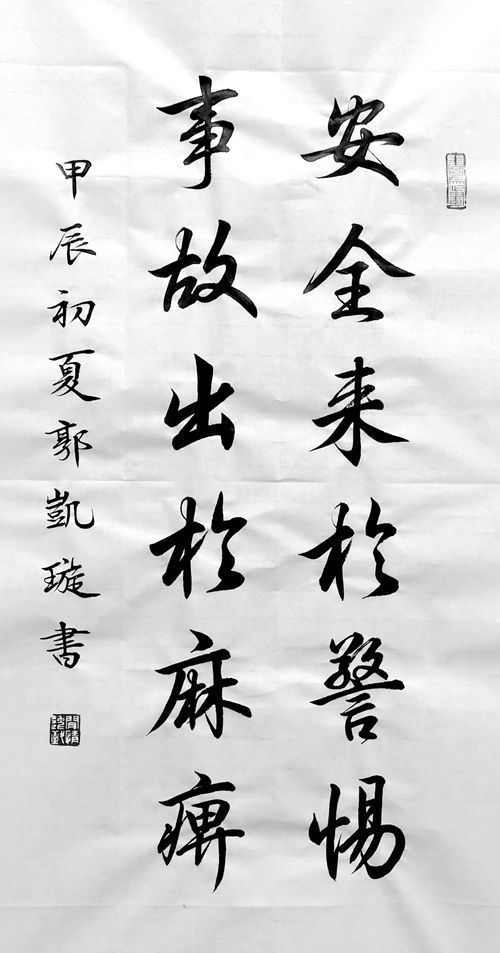 安全来於警惕
事故出於麻痺
甲辰初夏郭凱璇書